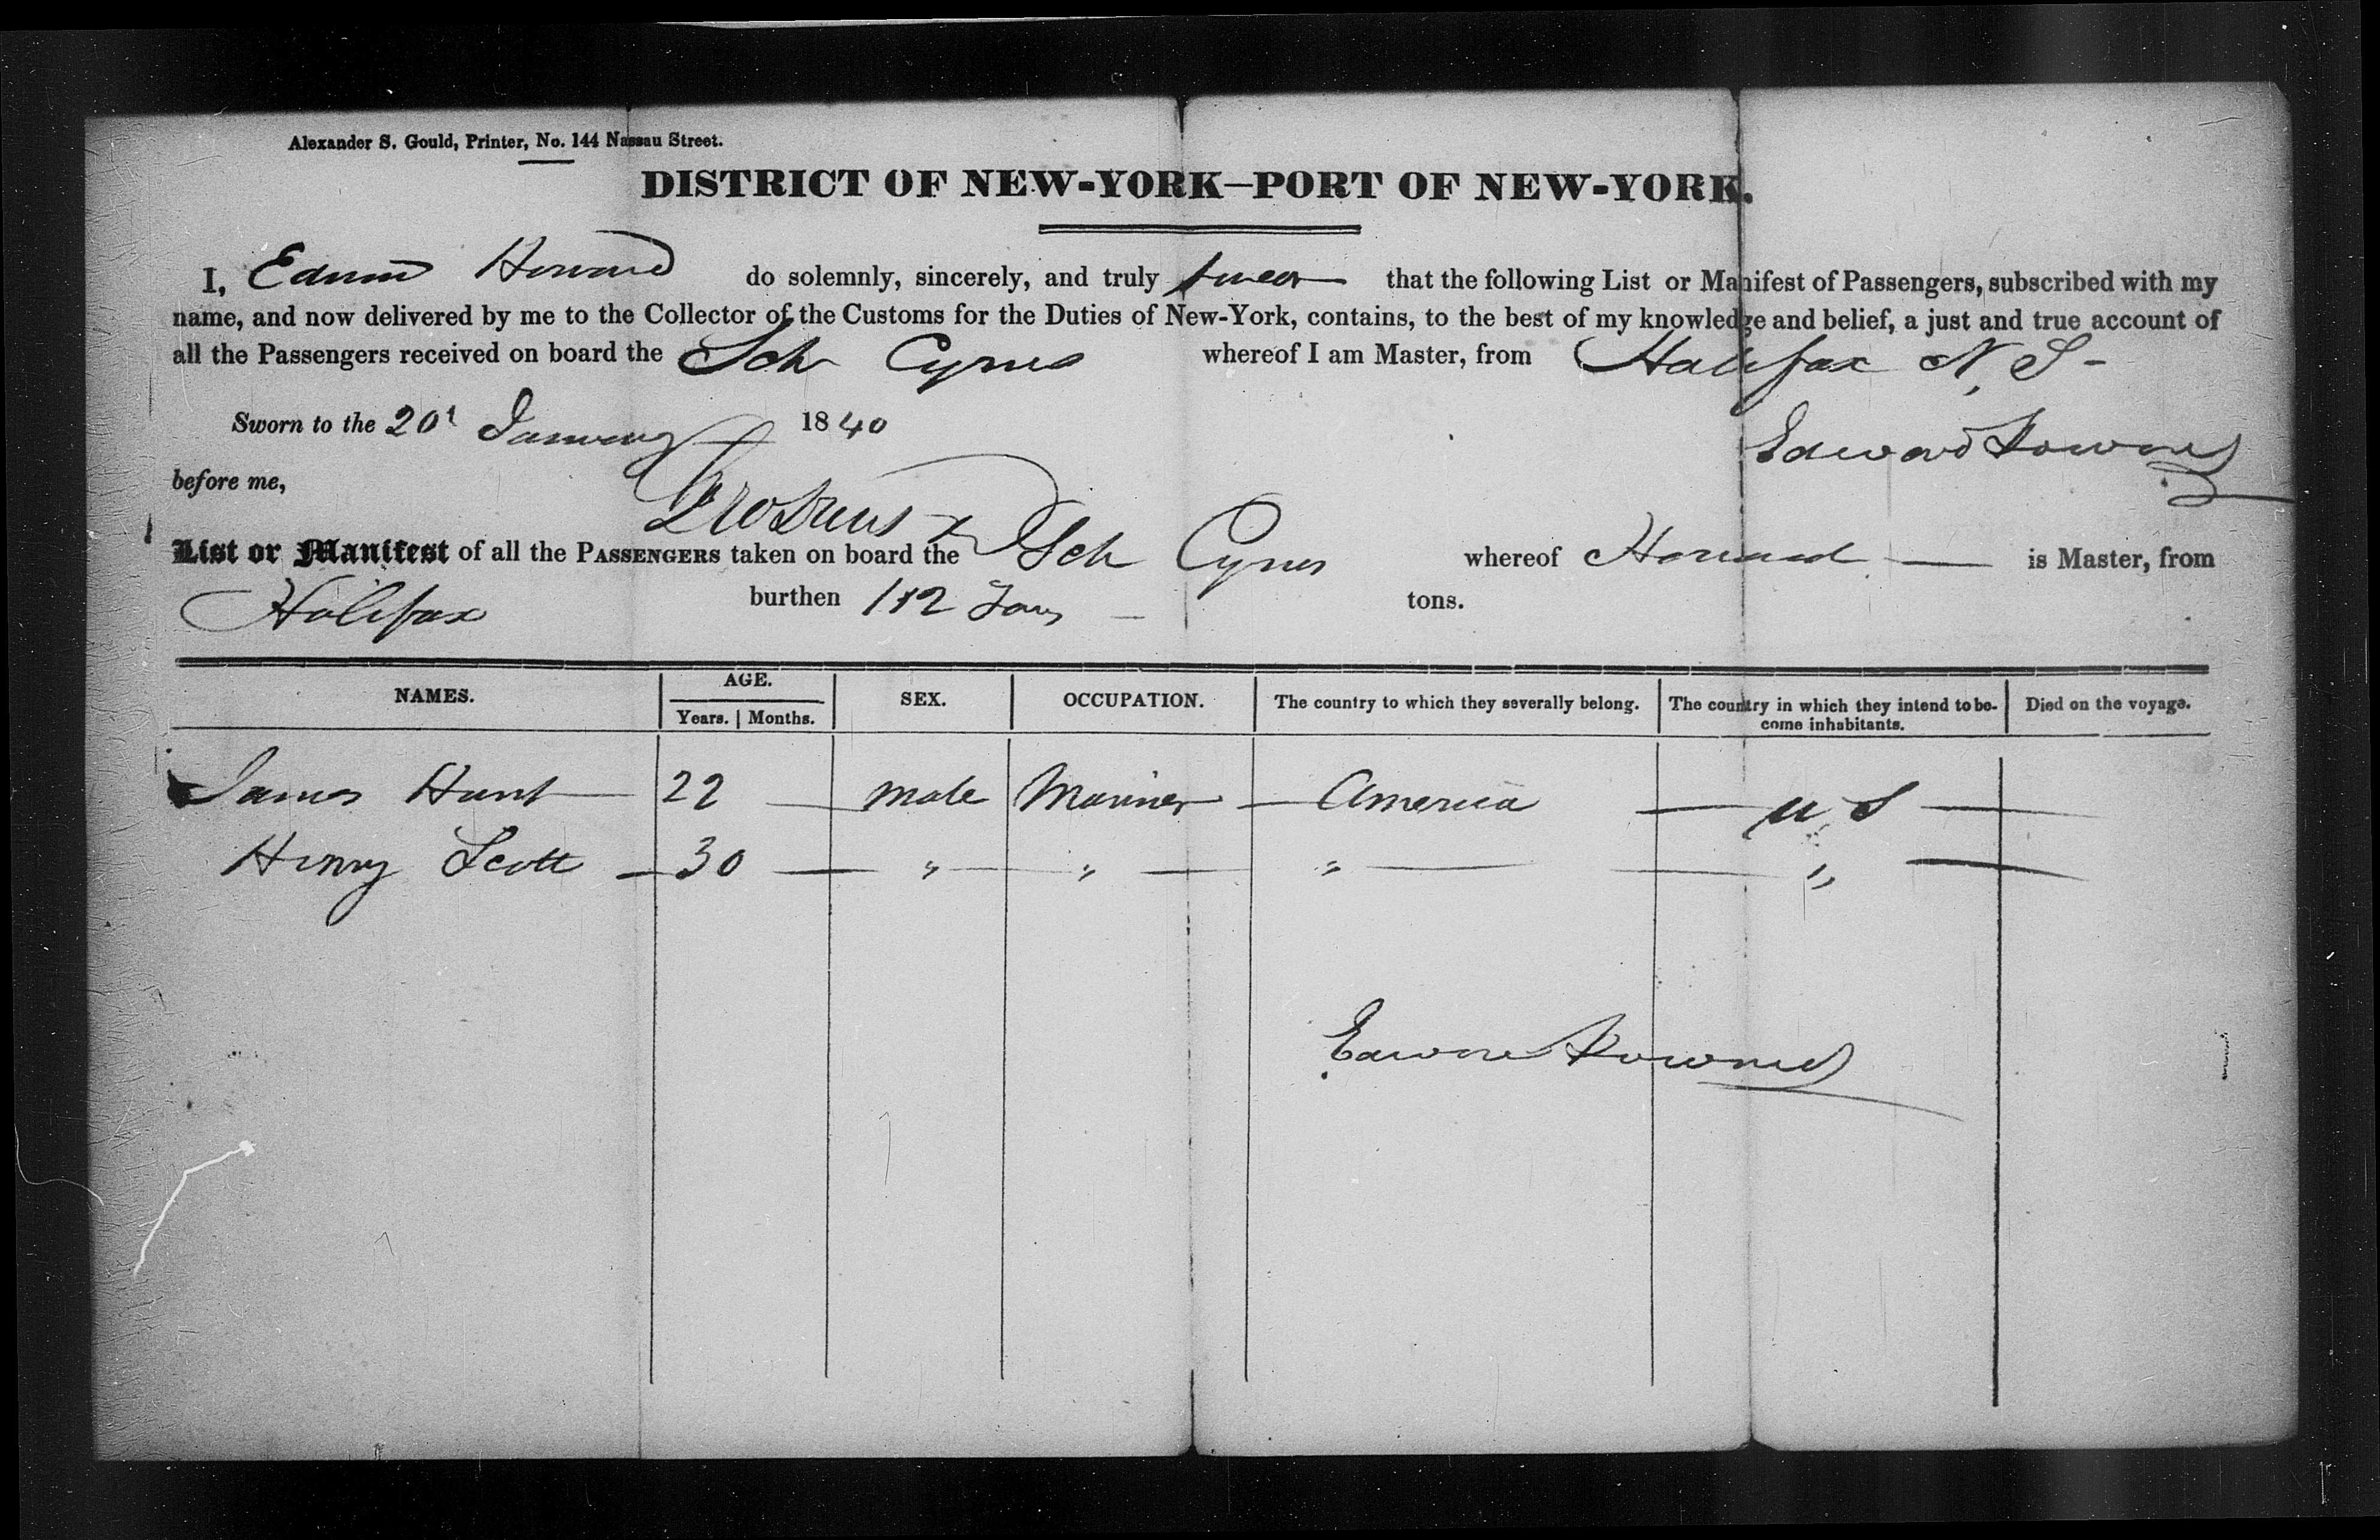 Alexander S. Gould, Printer, No. 144 Nassau Street.
DISTRICT OF NEW-YORK—PORT OF NEW-YORK.
I, Howard do solemnly, sincerely, and truly swear that the following List or Manifest of Passengers, subscribed with my
name, and now delivered by me to the Collector of the Customs for the Duties of New-York, contains, to the best of my knowledge and belief, a just and true account of
all the Passengers received on board the Sch Cyrus whereof I am Master, from Halifax N. S-
Sworn to the 20t January 1840
Edward
before me,
List or Manifest of all the PASSENGERS taken on board the Sch Cyrus whereof Howard is Master, from
Halifax burthen 112 Tons tons.
NAMES. AGE. Years. Months. SEX. OCCUPATION. The country to which they severally belong. The country in which they intend to become inhabitants. Died on the voyage.
James Hunt 22 male Mariner America U S
Henry Scott 30 " " " "